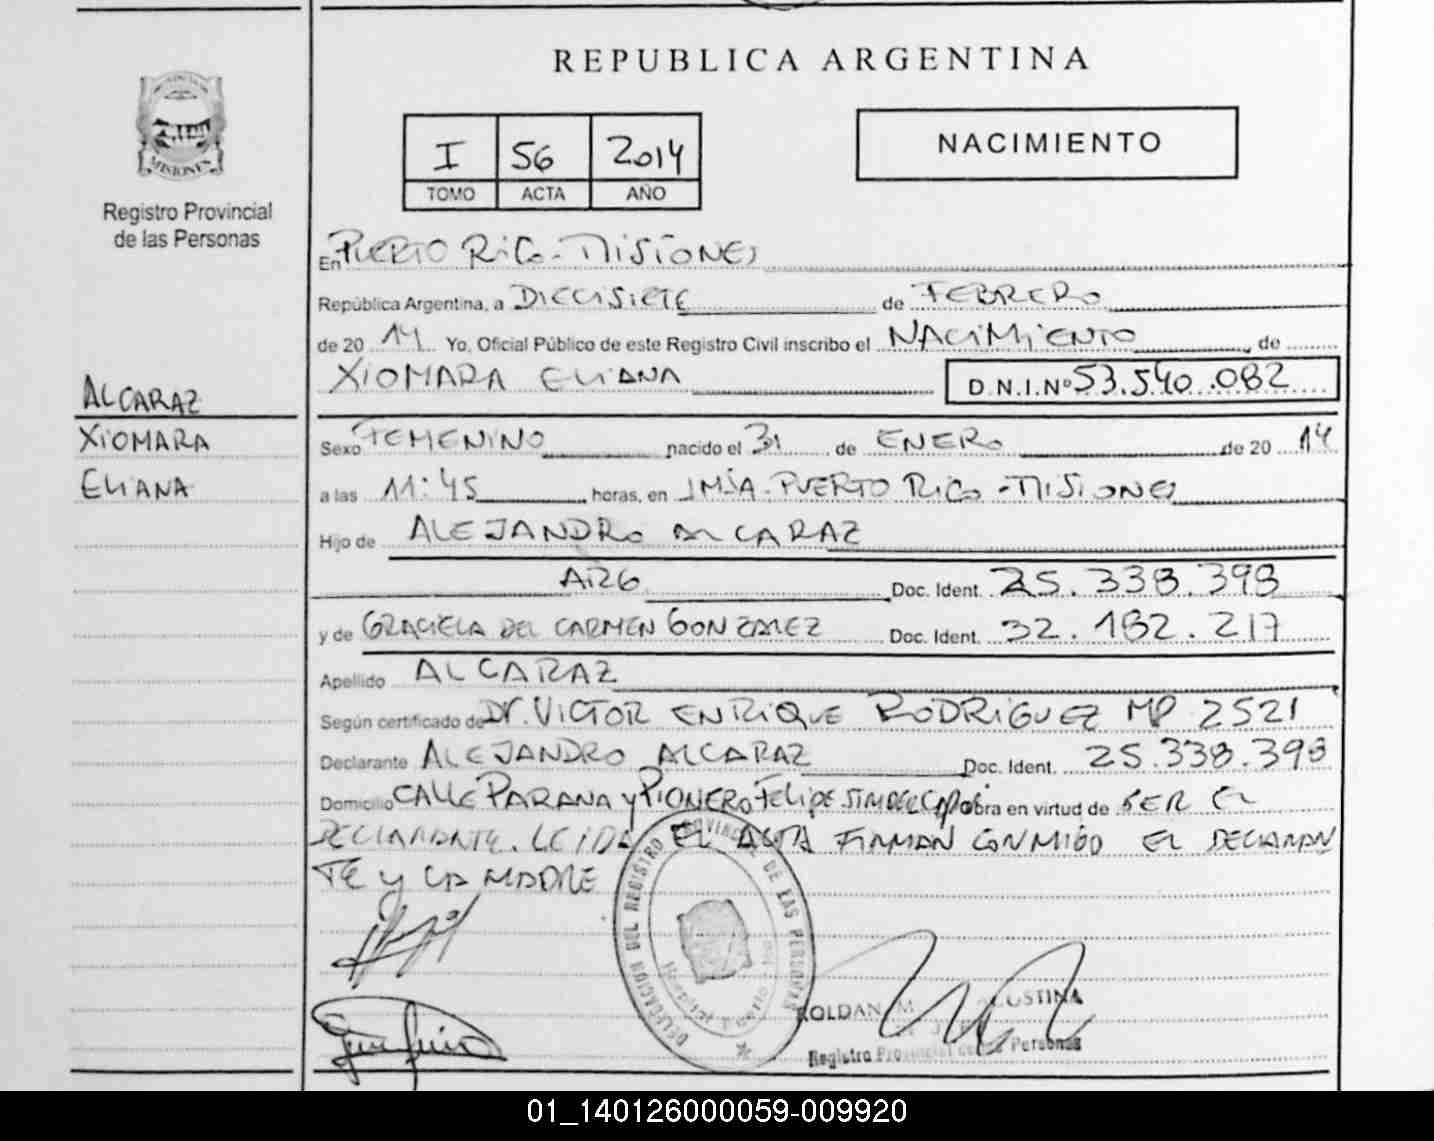 REPUBLICA ARGENTINA
MISIONES
Registro Provincial
de las Personas
I 56 2014
TOMO ACTA AÑO
NACIMIENTO
En PUERTO RICO - MISIONES
República Argentina, a DIECISIETE de FEBRERO
de 20 14 Yo, Oficial Público de este Registro Civil inscribo el NACIMIENTO, de
XIOMARA ELIANA D.N.I.Nº 53.540.082
ALCARAZ
XIOMARA
ELIANA
Sexo FEMENINO nacido el 31 de ENERO de 20 14
a las 11:45 horas, en PUERTO RICO - MISIONES
Hijo de ALEJANDRO ALCARAZ
ARG Doc. Ident. 25.338.398
y de GRACIELA DEL CARMEN GONZALEZ Doc. Ident. 32.182.217
Apellido ALCARAZ
Según certificado de Dr. VICTOR ENRIQUE RODRIGUEZ MP 2521
Declarante ALEJANDRO ALCARAZ Doc. Ident. 25.338.398
Domicilio CALLE PARANA y PIONERO FELIPE obra en virtud de SER EL
DECLARANTE. LEIDA EL ACTA FIRMAN CONMIGO EL DECLARAN
TE y LA MADRE
DELEGACION DEL REGISTRO PROVINCIAL DE LAS PERSONAS
ROLDAN M AGUSTINA
Registro Provincial de las Personas
01_140126000059-009920